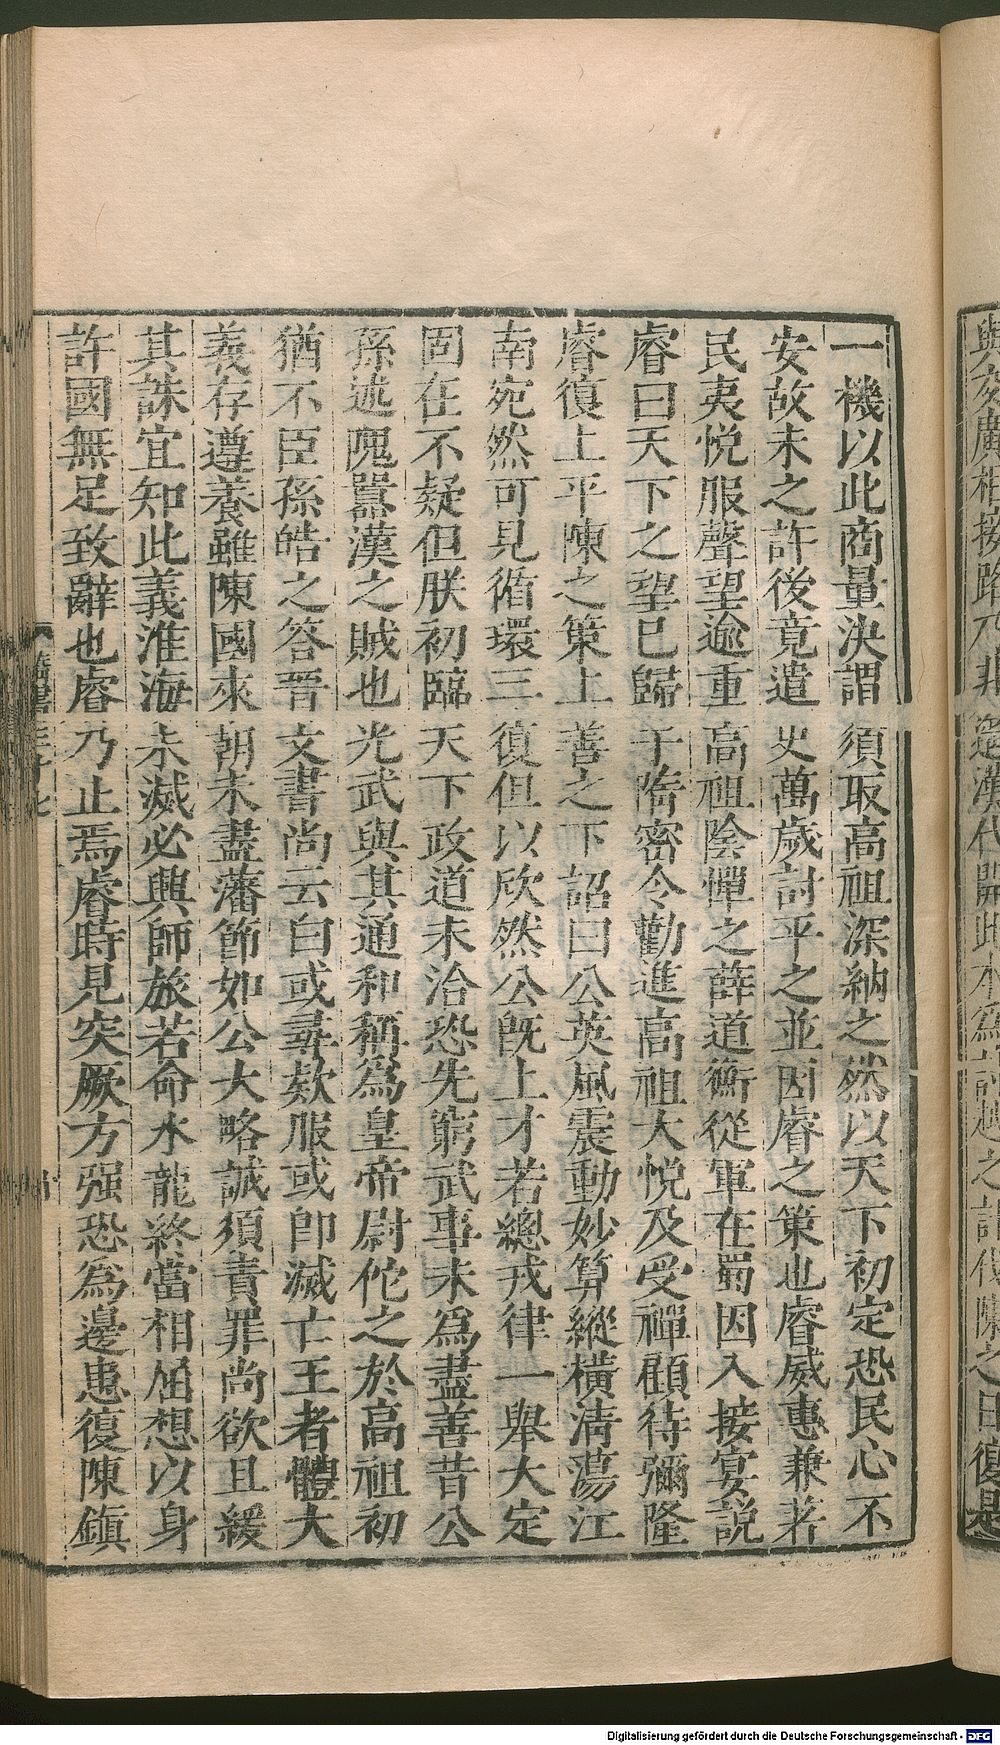 一機以此商量決謂須取高祖深納之然以天下初定恐民心不
安故未之許後竟遣史萬歲討平之並因睿之策也睿威惠兼著
民夷悅服聲望逾重高祖陰憚之薛道衡從軍在蜀因入接宴說
睿曰天下之望已歸于隋密令勸進高祖大悅及受禪顧待彌隆
睿復上平陳之策上善之下詔曰公英風震動妙算縱橫清蕩江
南宛然可見循環三復但以欣然公既上才若總戎律一舉大定
固在不疑但朕初臨天下政道未洽恐先窮武事未爲盡善昔公
孫述隗囂漢之賊也光武與其通和稱爲皇帝尉佗之於高祖初
猶不臣孫皓之答晉文書尚云白或尋款服或即滅亡王者體大
義存遵養雖陳國來朝未盡藩節如公大略誠須責罪尚欲且緩
其誅宜知此義淮海未滅必興師旅若命水龍終當相屈想以身
許國無足致辭也睿乃止焉睿時見突厥方强恐爲邊患復陳鎮
Digitalisierung gefördert durch die Deutsche Forschungsgemeinschaft - DFG